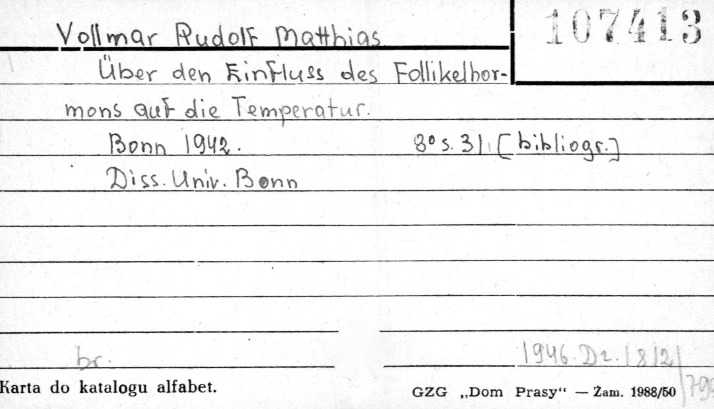 107413
Vollmar Rudolf Matthias
Über den Einfluss des Follikelhor-
mons auf die Temperatur.
Bonn 1942. 8° s. 31. [bibliogr.]
Diss. Univ. Bonn
br. 1946. Dz. 18/2/
Karta do katalogu alfabet. GZG „Dom Prasy“ — Zam. 1988/50